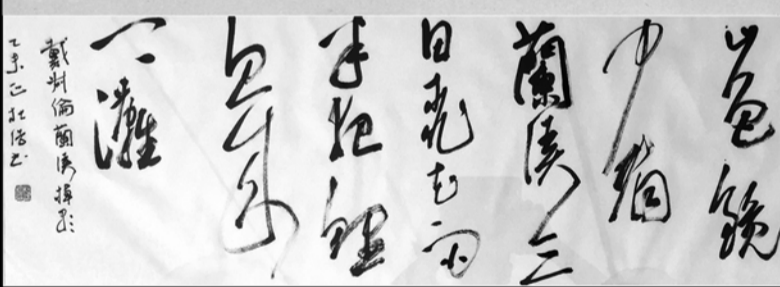 山色鏡
中看
蘭溪三
日桃花雨
半夜鲤
魚来
上灘
戴叔倫蘭溪棹歌
乙未